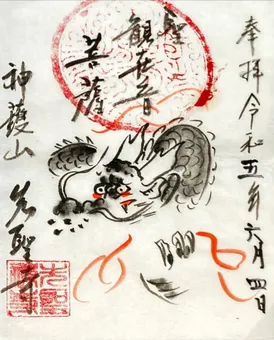 奉拝令和五年六月四日
聖観世音
菩薩
神護山
先聖寺